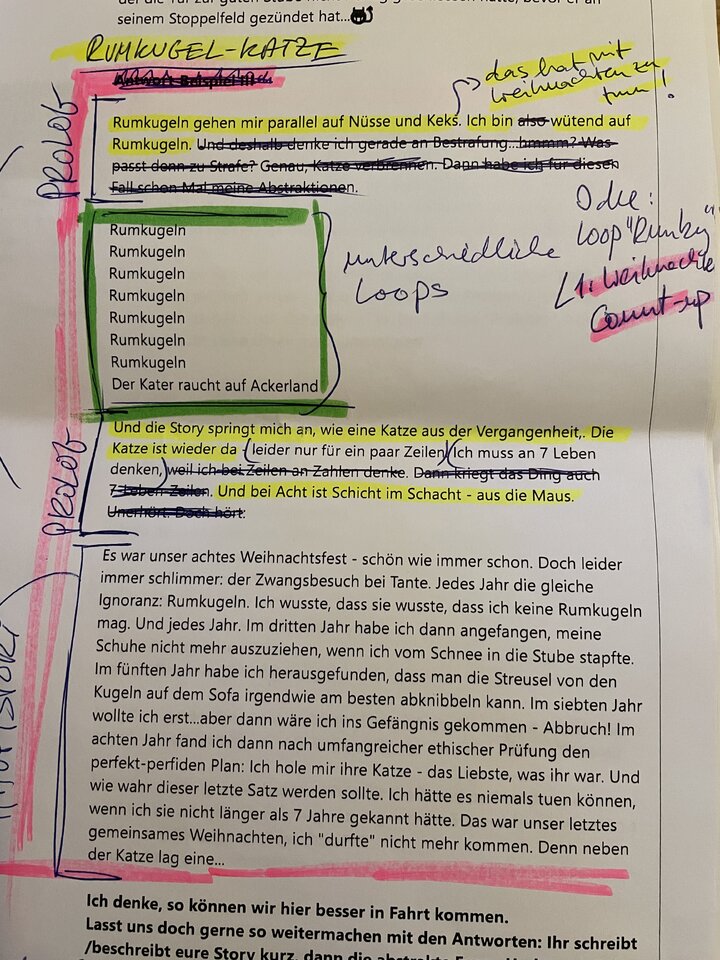 seinem Stoppelfeld gezündet hat...
RUMKUGEL-KATZE
Antwort Beispiel III
das hat mit
Weihnachten zu
tun!
PROLOG
Rumkugeln gehen mir parallel auf Nüsse und Keks. Ich bin also wütend auf
Rumkugeln. Und deshalb denke ich gerade an Bestrafung...hmmm? Was
passt denn zu Strafe? Genau, Katze verbrennen. Dann habe ich für diesen
Fall schon Mal meine Abstraktionen.
Rumkugeln
Rumkugeln
Rumkugeln
Rumkugeln
Rumkugeln
Rumkugeln
Rumkugeln
Der Kater raucht auf Ackerland
unterschiedliche
Loops
Oder:
Loop "Rumky"
1. Weihnachte
Count-up
PROLOG
Und die Story springt mich an, wie eine Katze aus der Vergangenheit,. Die
Katze ist wieder da (leider nur für ein paar Zeilen) Ich muss an 7 Leben
denken, weil ich bei Zeilen an Zahlen denke. Dann kriegt das Ding auch
7 Leben-Zeilen. Und bei Acht ist Schicht im Schacht - aus die Maus.
Unerhört. Doch hört:
Es war unser achtes Weihnachtsfest - schön wie immer schon. Doch leider
immer schlimmer: der Zwangsbesuch bei Tante. Jedes Jahr die gleiche
Ignoranz: Rumkugeln. Ich wusste, dass sie wusste, dass ich keine Rumkugeln
mag. Und jedes Jahr. Im dritten Jahr habe ich dann angefangen, meine
Schuhe nicht mehr auszuziehen, wenn ich vom Schnee in die Stube stapfte.
Im fünften Jahr habe ich herausgefunden, dass man die Streusel von den
Kugeln auf dem Sofa irgendwie am besten abknibbeln kann. Im siebten Jahr
wollte ich erst...aber dann wäre ich ins Gefängnis gekommen - Abbruch! Im
achten Jahr fand ich dann nach umfangreicher ethischer Prüfung den
perfekt-perfiden Plan: Ich hole mir ihre Katze - das Liebste, was ihr war. Und
wie wahr dieser letzte Satz werden sollte. Ich hätte es niemals tuen können,
wenn ich sie nicht länger als 7 Jahre gekannt hätte. Das war unser letztes
gemeinsames Weihnachten, ich "durfte" nicht mehr kommen. Denn neben
der Katze lag eine...
Ich denke, so können wir hier besser in Fahrt kommen.
Lasst uns doch gerne so weitermachen mit den Antworten: Ihr schreibt
/beschreibt eure Story kurz, dann die